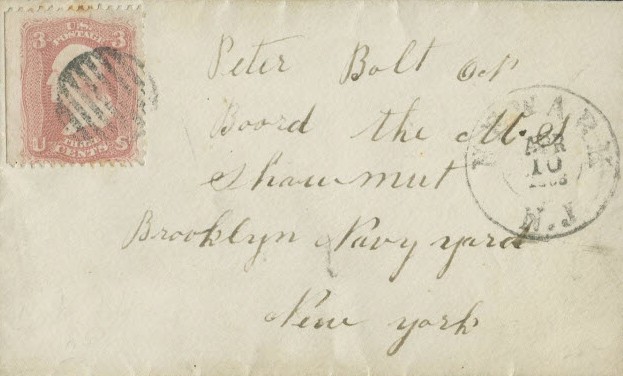 3 U.S. 3
POSTAGE
U S
CENTS
Peter Bolt on
Board the U.S.
Shawmut
Brooklyn Navy yard
New york
NEWARK
APR
10
N.J